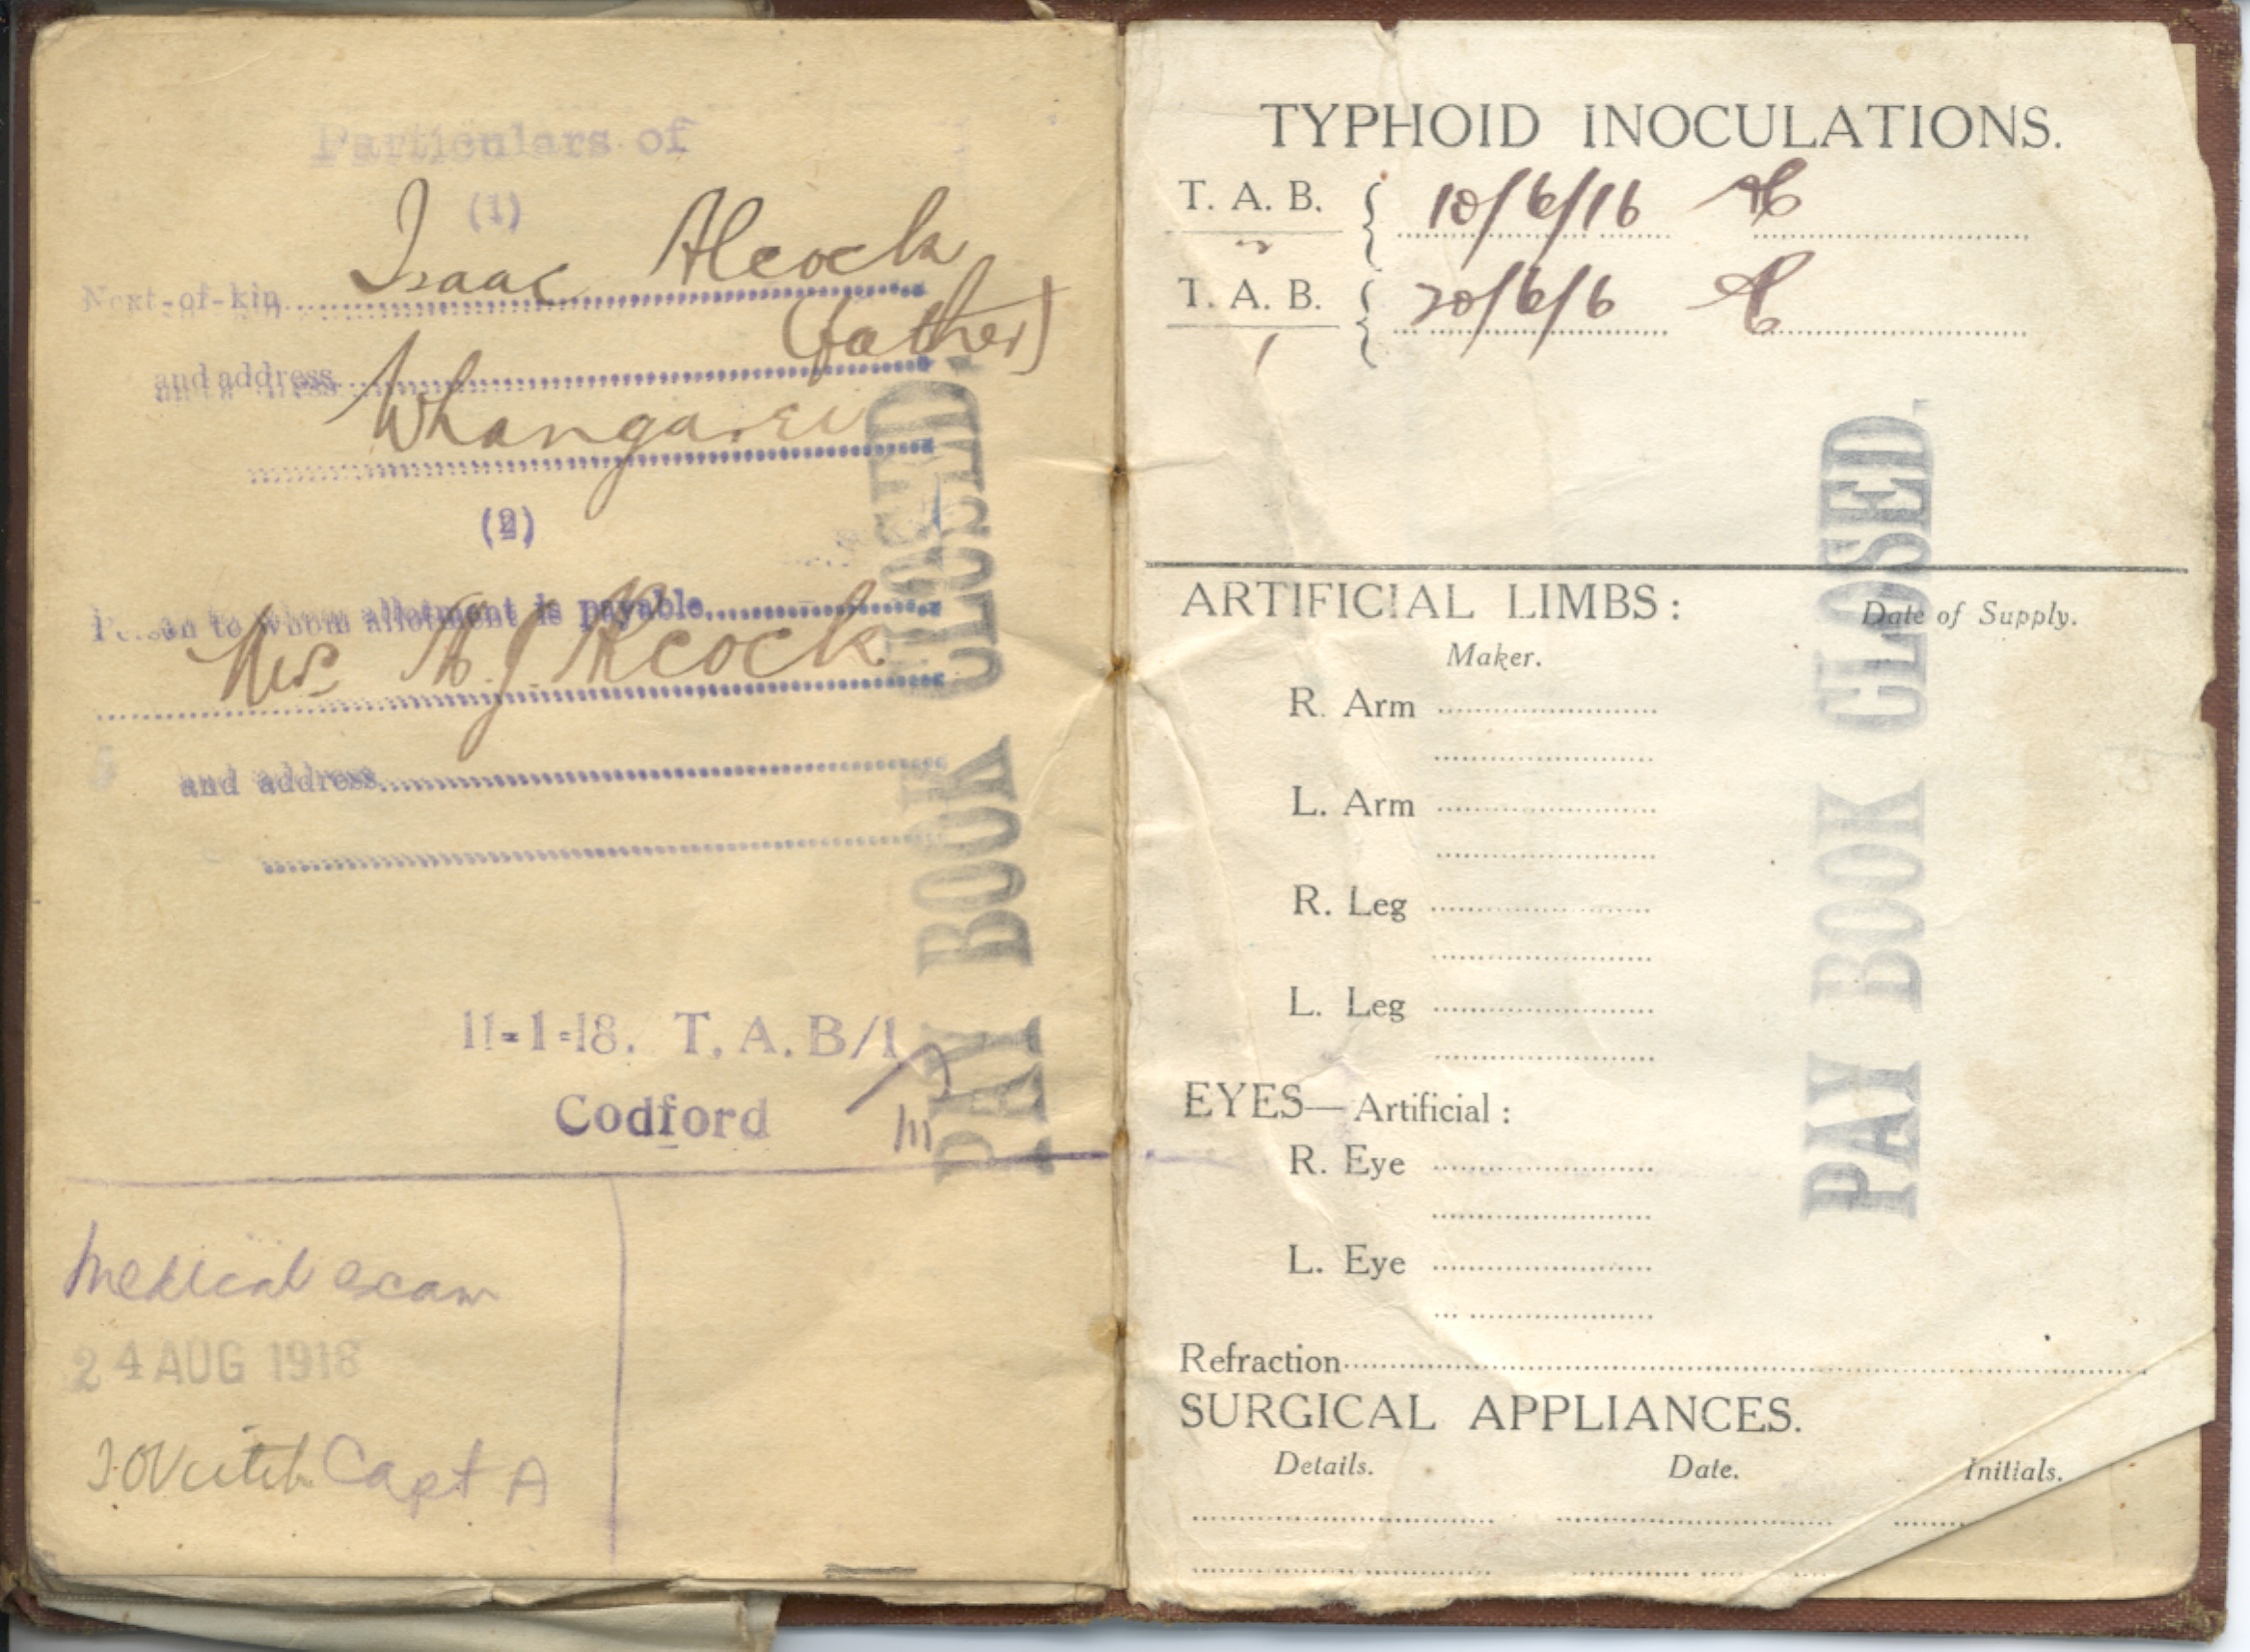 Particulars of
(1)
Next-of-kin Isaac Alcock
(father)
and address
Whangarei
(2)
Person to whom allotment is payable
Mrs J Alcock
and address
11-1-18. T. A. B/1
Codford
Medical exam
24 AUG 1918
Capt A
PAY BOOK CLOSED.
TYPHOID INOCULATIONS.
T. A. B. 10/6/16
T. A. B. 20/6/6
ARTIFICIAL LIMBS: Date of Supply.
Maker.
R. Arm
L. Arm
R. Leg
L. Leg
EYES—Artificial:
R. Eye
L. Eye
Refraction
SURGICAL APPLIANCES.
Details. Date. Initials.
PAY BOOK CLOSED.